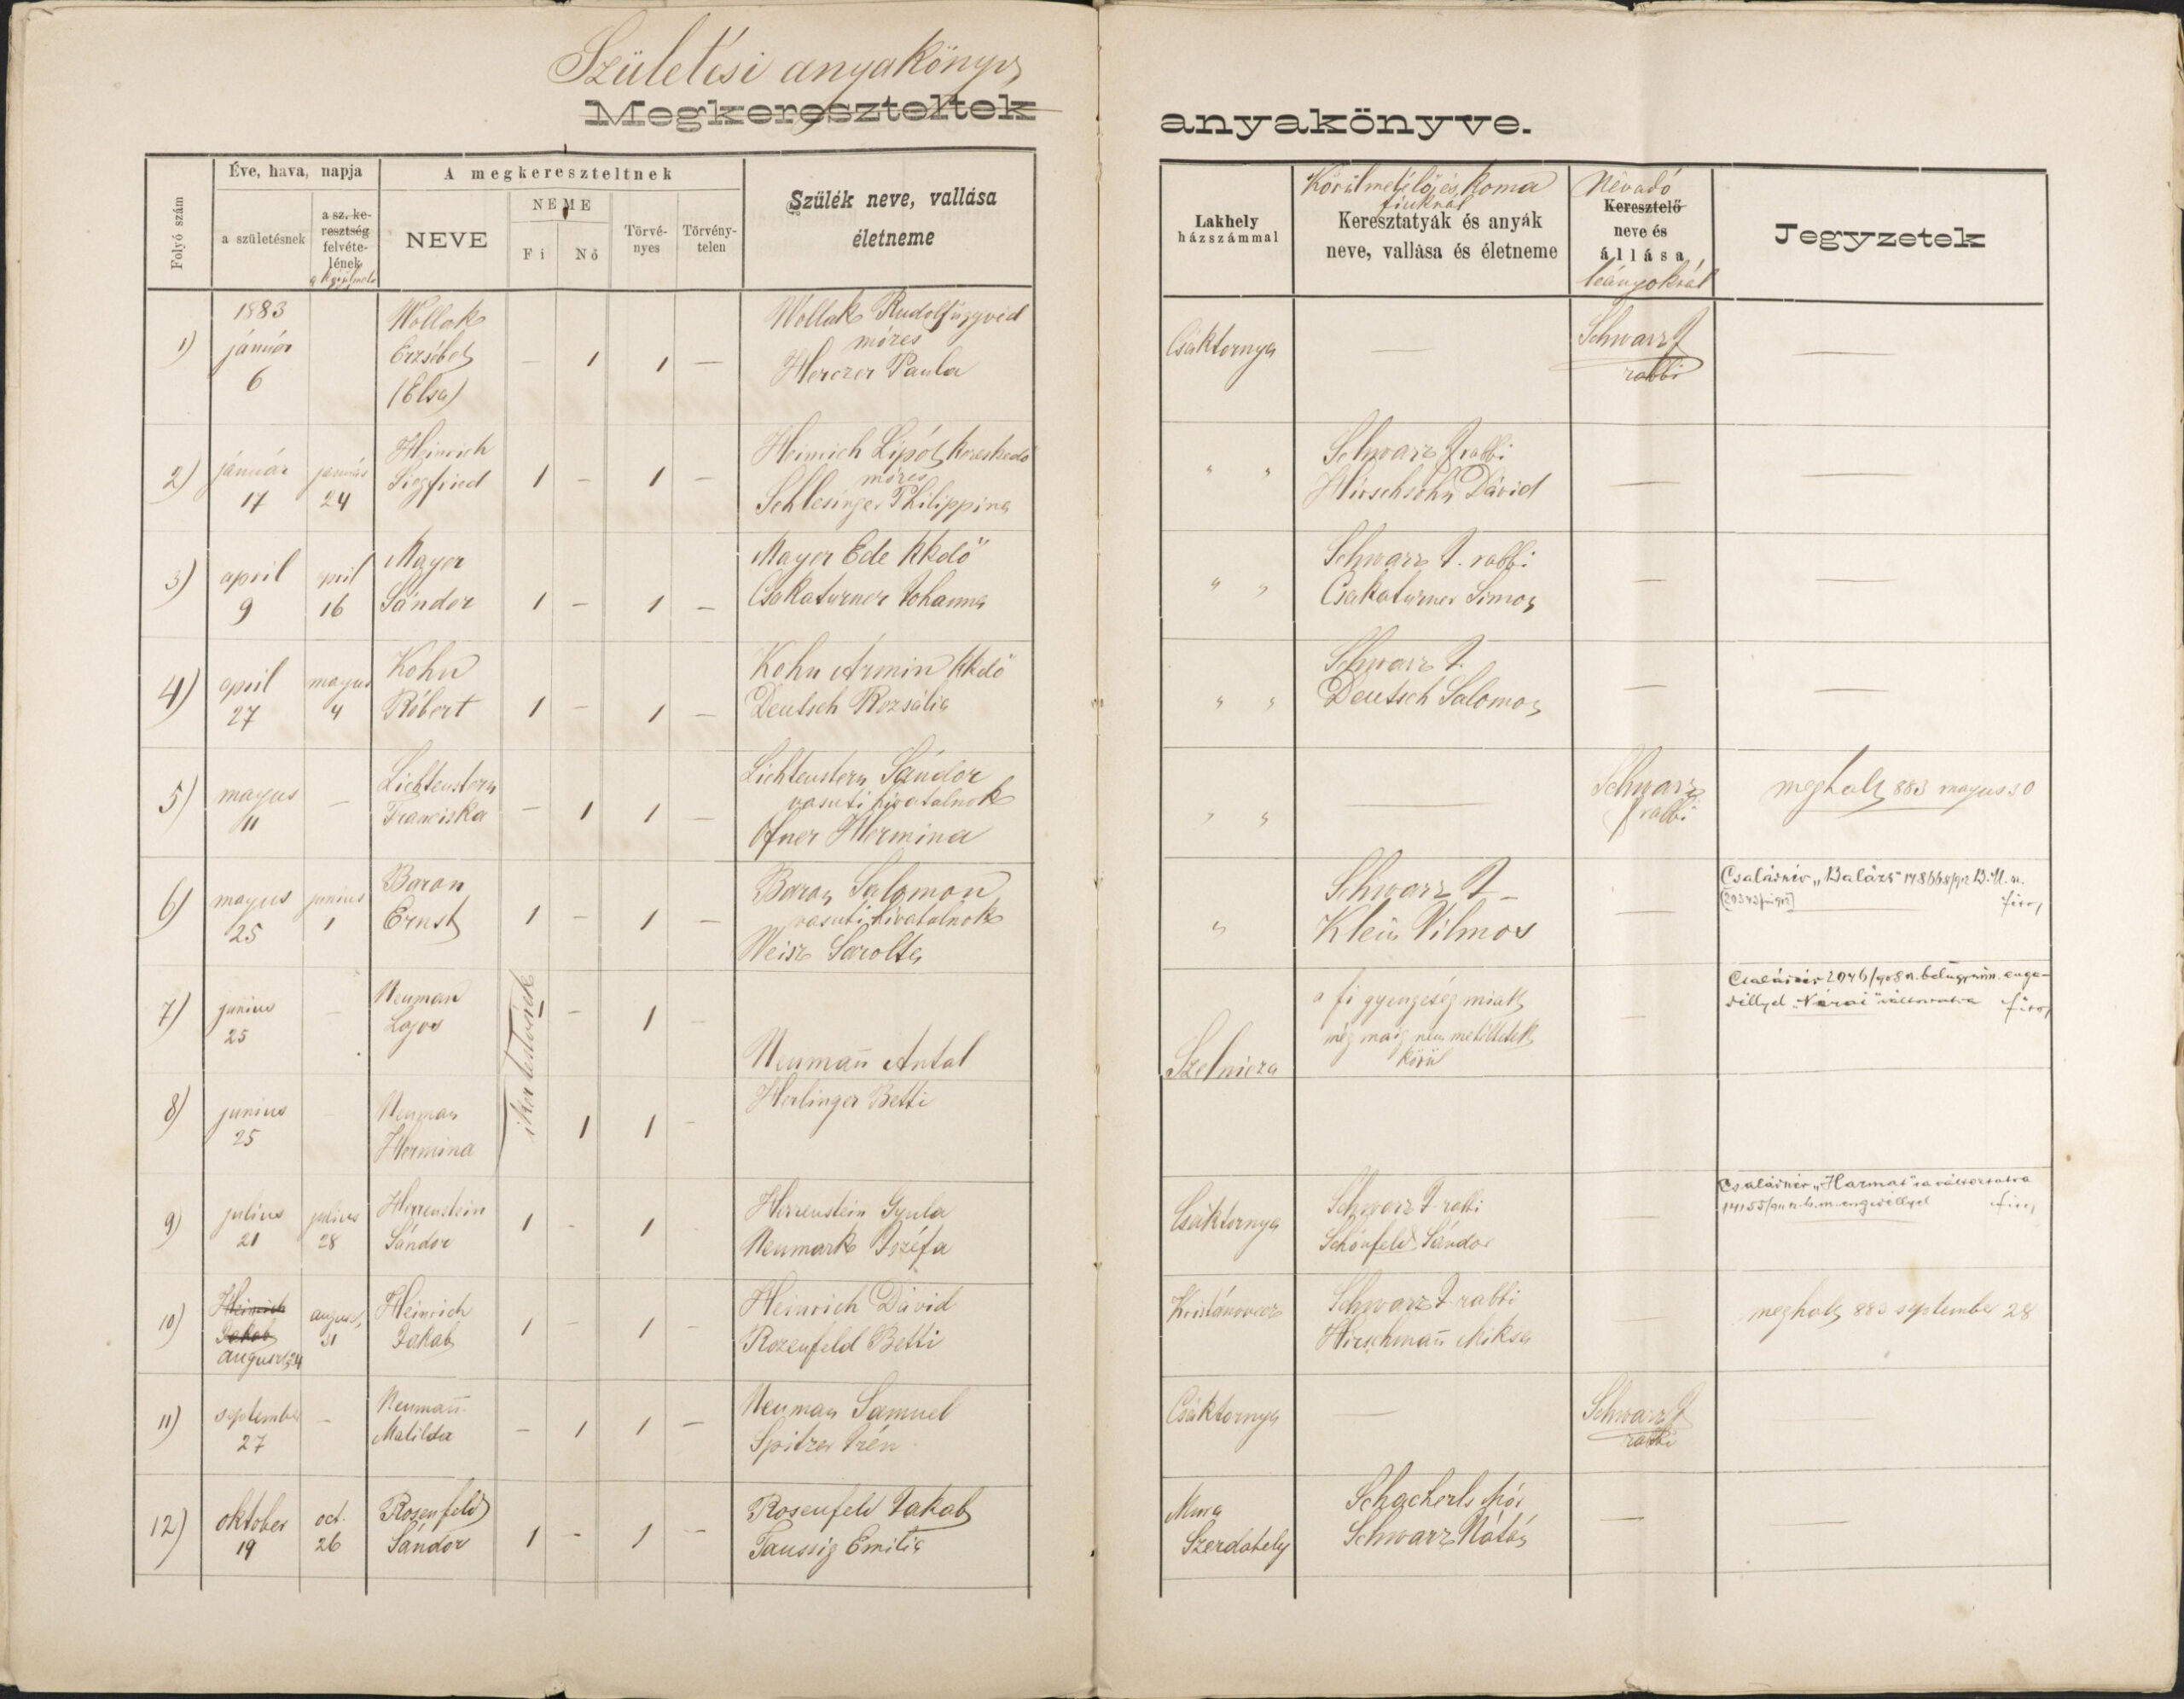 Születési anyakönyv
Megkereszteltek anyakönyve.
Folyó szám
Éve, hava, napja
a születésnek
a sz. ke-
resztség
felvéte-
lének
A megkereszteltnek
NEVE
NEME
Fi
Nő
Törvé-
nyes
Törvény-
telen
Szülék neve, vallása
életneme
Lakhely
házszámmal
Körülmetélő és Koma
fiuknál
Keresztatyák és anyák
neve, vallása és életneme
Névadó
Keresztelő
neve és
állása
leányoknál
Jegyzetek
1)
1883
január
6
Wollak
Erzsébet
(Elsa)
— 1 1 —
Wollak Rudolf ügyvéd
mózes
Herczer Paula
Csáktornya
—
Schwarz J
rabbi
—
2)
január
17
január
24
Heinrich
Siegfried
1 – 1 –
Heinrich Lipót kereskedő
mózes
Schlesinger Philippina
" "
Schwarz J rabbi
Hirschsohn Dávid
—
—
3)
april
9
april
16
Mayer
Sándor
1 – 1 –
Mayer Ede kkdő
Csakaturner Johanna
" "
Schwarz J. rabbi
Csakaturner Simon
—
—
4)
april
27
majus
4
Kohn
Róbert
1 – 1 –
Kohn Armin kkdő
Deutsch Rozsália
" "
Schwarz J.
Deutsch Salomon
—
—
5)
majus
11
—
Lichtenstern
Franciska
– 1 1 –
Lichtenstern Sándor
vasuti hivatalnok
Ofner Hermina
" "
—
Schwarz
J rabbi
meghalt 883 majus 30
6)
majus
25
junius
1
Baron
Ernst
1 – 1 –
Baron Salomon
vasuti hivatalnok
Weisz Sarolta
"
Schwarz J –
Klein Vilmos
—
Családnév „Balázs" 178668/912 B.M.
7)
junius
25
–
Neuman
Lajos
ikertestvérek
1 – 1 –
Neumañ Antal
Herlinger Betti
Szelnicza
a fi gyengeség miatt
még maig nem metéltetett
körül
—
Családnév 2046/908 n. belügymin. enge-
déllyel „Várai" változtatva
8)
junius
25
–
Neuman
Hermina
1 1 –
9)
julius
21
julius
28
Herrenstein
Sándor
1 – 1
Herrenstein Gyula
Neumark Jozéfa
Csáktornya
Schwarz J rabbi
Schönfeld Sándor
—
Családnév „Harmat" ra változtatva
10)
Heinrich
Jakab
august 24
august
31
Heinrich
Jakab
1 – 1 –
Heinrich Dávid
Rozenfeld Betti
Schwarz J rabbi
Hirschmañ Miksa
—
meghalt 883 september 28
11)
september
27
–
Neumañ
Matilda
– 1 1 –
Neuman Samuel
Spitzer Irén
Csáktornya
—
Schwarz J
rabbi
12)
oktober
19
oct.
26
Rosenfeld
Sándor
1 – 1 –
Rosenfeld Jakab
Taussig Emilia
Mura
Szerdahely
Schacherls Mór
Schwarz Nátán
—
—